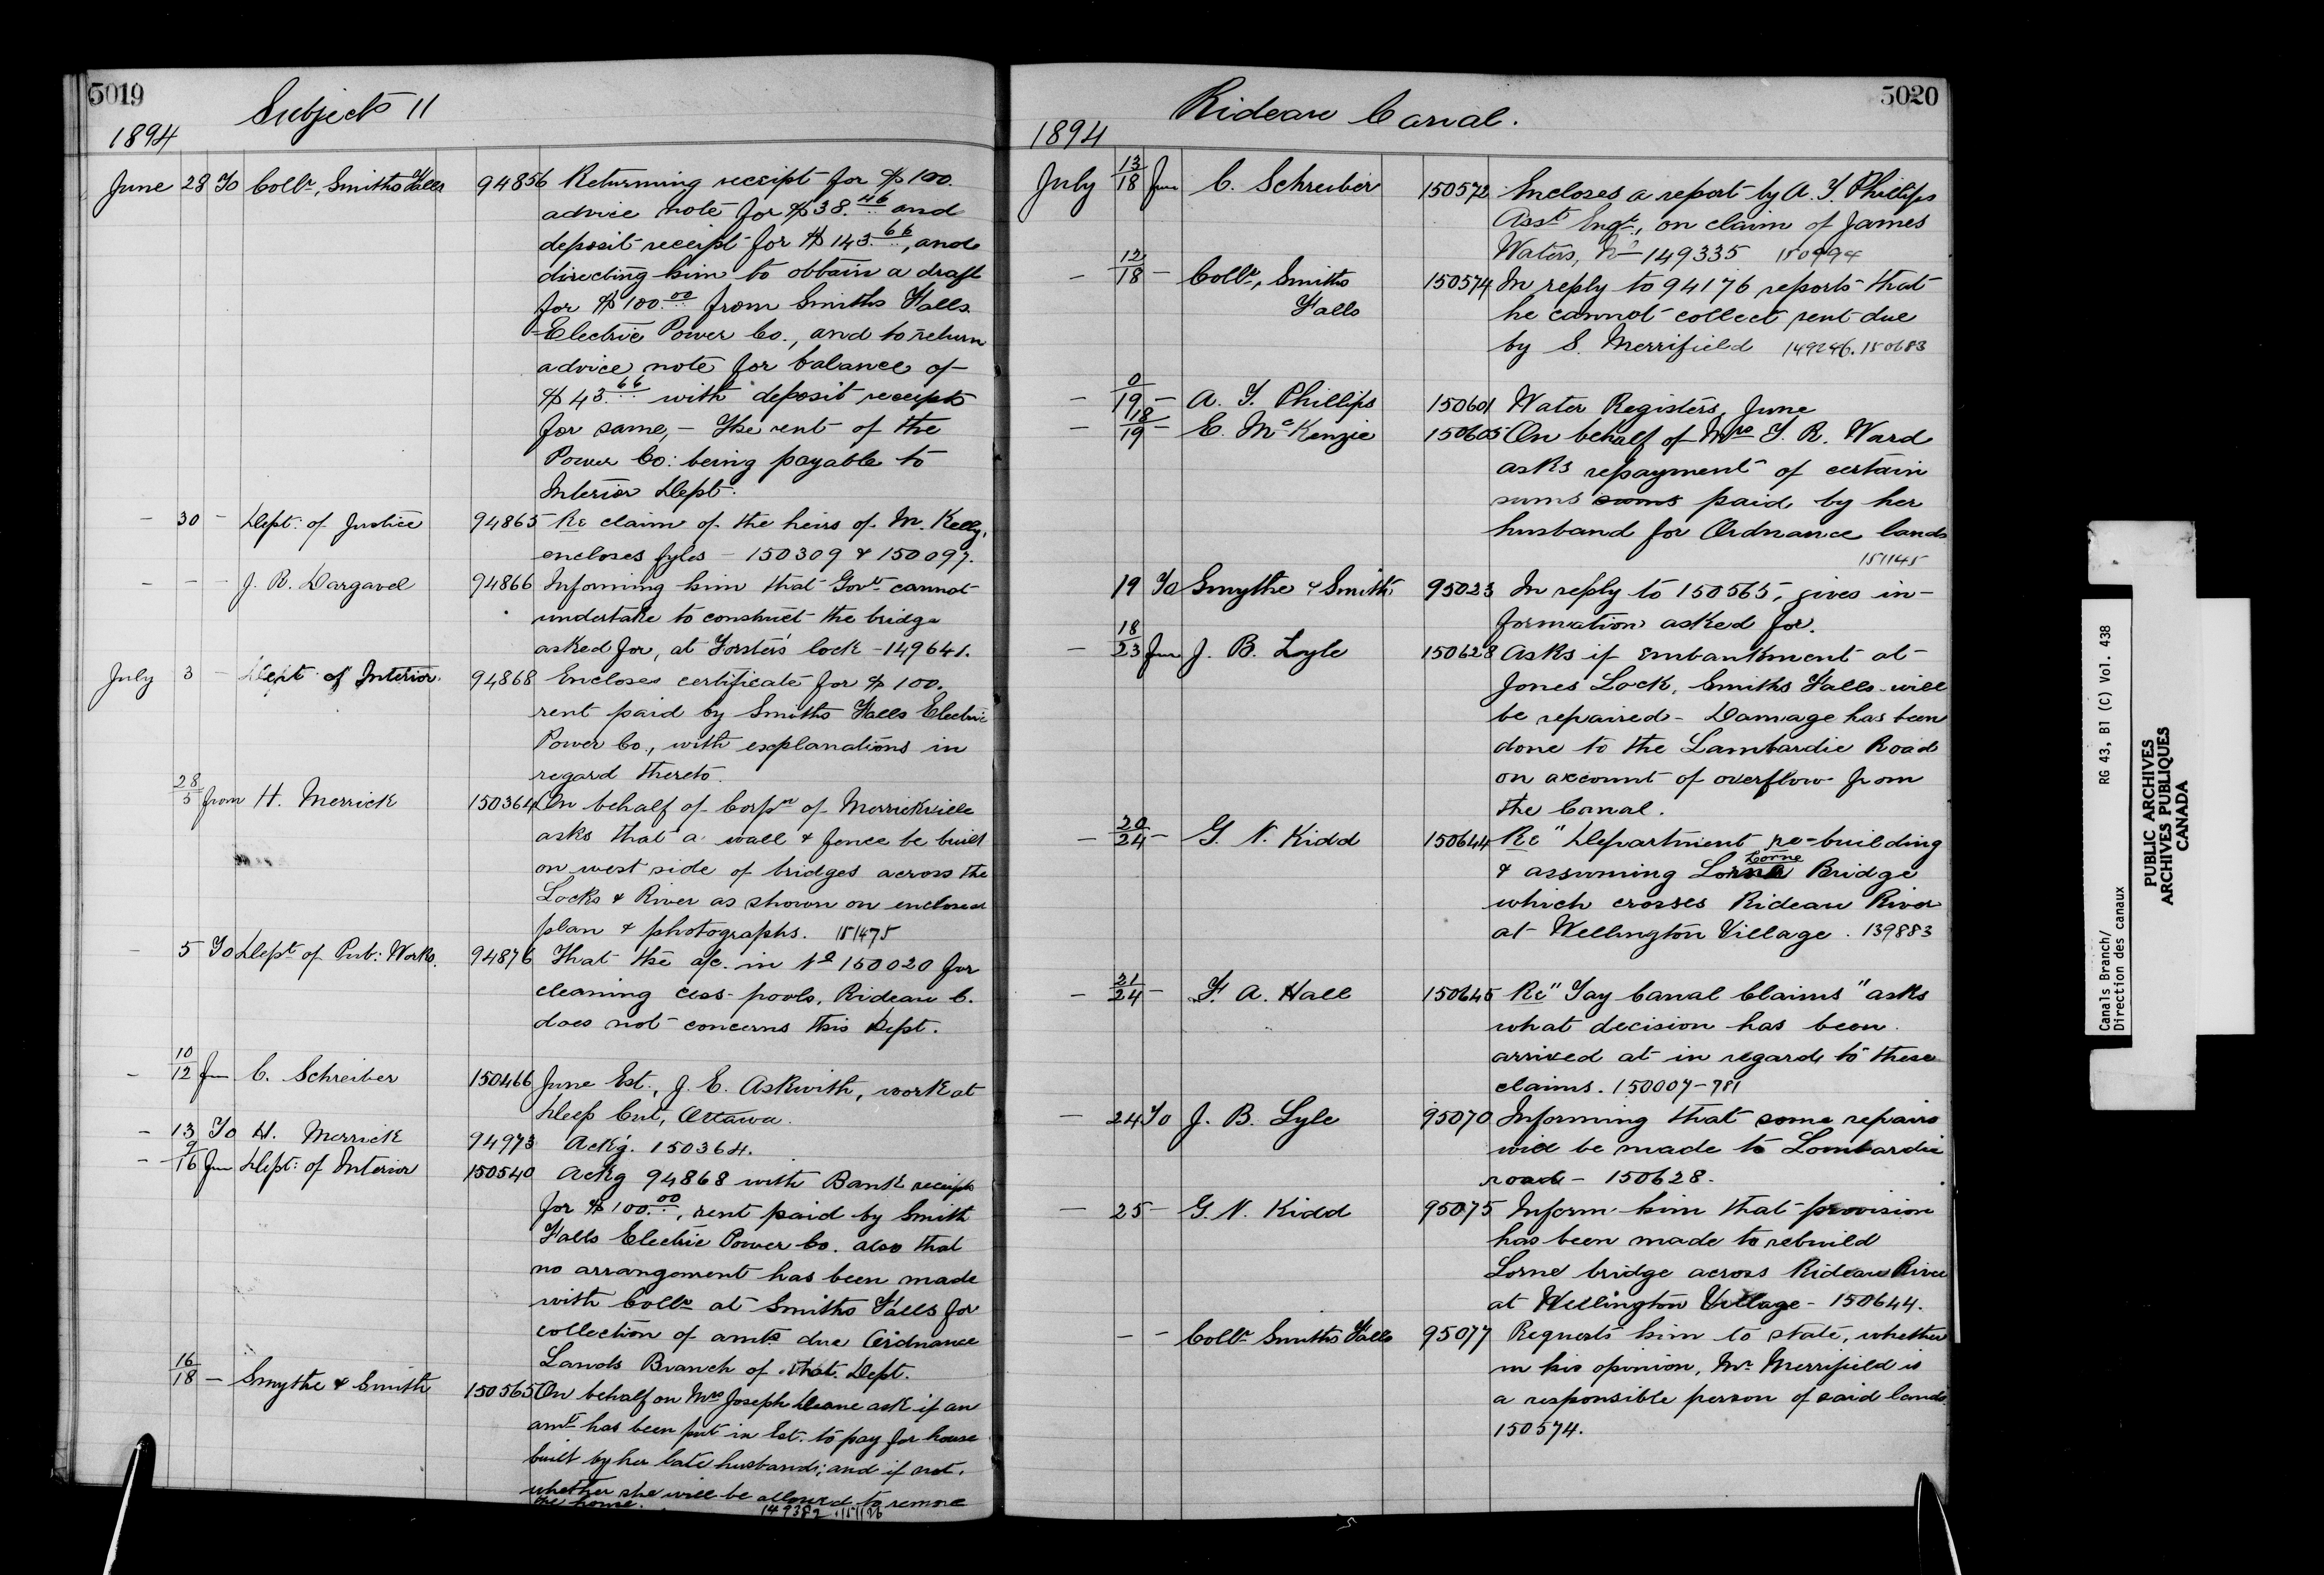 5019
Subject 11
1894
June 28 To Collr, Smiths Falls 94856 Returning receipt for $100.
advice note for $38.46 and
deposit receipt for $143.66, and
directing him to obtain a draft
for $100.00 from Smiths Falls
Electric Power Co., and to return
advice note for balance of
$43.66 with deposit receipts
for same, - The rent of the
Power Co: being payable to
Interior Dept.
- 30 - Dept: of Justice 94865 Re claim of the heirs of M. Kelly,
encloses fyles - 150309 & 150097.
- - - J. R. Dargavel 94866 Informing him that Govt cannot
undertake to construct the bridge
asked for, at Forster's lock - 149641.
July 3 - Dept of Interior. 94868 Encloses certificate for $100.
rent paid by Smiths Falls Electric
Power Co., with explanations in
regard thereto.
28/5 from H. Merrick 150364 On behalf of Corpn of Merrickville
asks that a wall & fence be built
on west side of bridges across the
Locks & River as shown on enclosed
plan & photographs. 151475
- 5 To Dept of Pub: Works. 94876 That the a/c. in No 150020 for
cleaning cess-pools, Rideau C.
does not concerns this Dept.
- 10/12 from C. Schreiber 150466 June Est., J. E. Askwith, work at
Deep Cut, Ottawa.
- 13 To H. Merrick 94973 Ackg. 150364.
- 9/16 from Dept: of Interior 150540 Ackg 94868 with Bank receipt
for $100.00, rent paid by Smith
Falls Electric Power Co. also that
no arrangement has been made
with Collr at Smiths Falls for
collection of amts due Ordnance
Lands Branch of that Dept.
16/18 - Smythe & Smith 150565 On behalf on Mrs Joseph Deane ask if an
amt has been put in Est. to pay for house
built by her late husband; and if not,
whether she will be allowed to remove
the home. 149382
5020
Rideau Canal.
1894
July 13/18 from C. Schreiber 150572 Encloses a report by A. T. Phillips
Asst Engr., on claim of James
Waters, No 149335 150994
- 12/18 - Collr, Smiths 150574 In reply to 94176 reports that
Falls he cannot collect rent due
by S. Merrifield 149296. 150683
- 0/19 - A. T. Phillips 150601 Water Registers, June
- 18/19 - E. McKenzie 150605 On behalf of Mrs T. R. Ward
asks repayment of certain
sums sums paid by her
husband for Ordnance lands
151145
19 To Smythe & Smith 95023 In reply to 150565, gives in-
formation asked for.
- 18/23 from J. B. Lyle 150628 Asks if embankment at
Jones Lock, Smiths Falls will
be repaired - Damage has been
done to the Lambardie Road
on account of overflow from
the Canal.
- 20/24 - G. N. Kidd 150644 Re "Department re-building
Lorne
& assuming Lorne Bridge
which crosses Rideau River
at Wellington Village. 139883
- 21/24 - F. A. Hall 150645 Re "Tay Canal Claims" asks
what decision has been
arrived at in regards to these
claims. 150007-781
- 24 To J. B. Lyle 95070 Informing that some repairs
will be made to Lombardie
road - 150628.
- 25 - G. N. Kidd 95075 Inform him that provision
has been made to rebuild
Lorne bridge across Rideau River
at Wellington Village - 150644.
- - Collr Smiths Falls 95077 Requests him to state, whether
in his opinion, Mr Merrifield is
a responsible person of said lands
150574.
Canals Branch/ RG 43, B1 (C) Vol. 438
Direction des canaux
PUBLIC ARCHIVES
ARCHIVES PUBLIQUES
CANADA